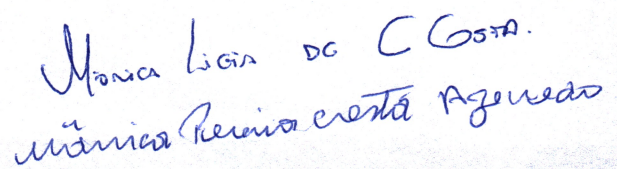 Monica Ligia DG C Costa.
Mônica Pereira Costa Azevedo